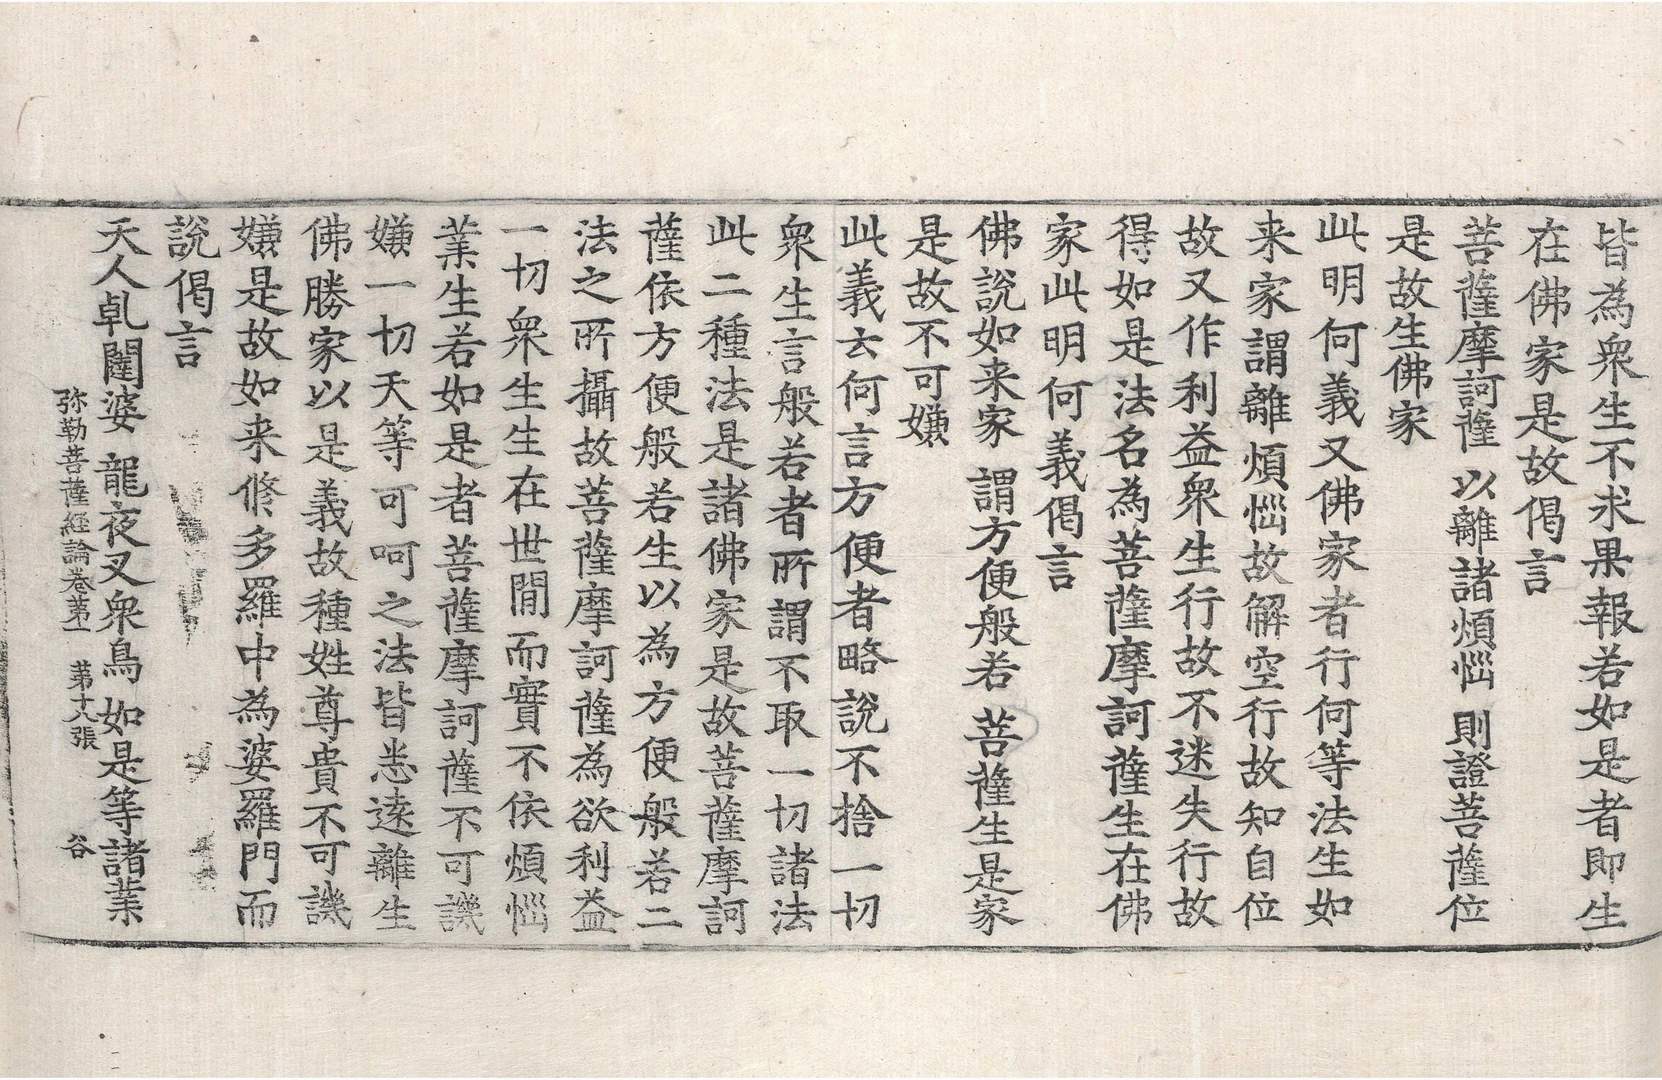 皆為衆生不求果報若如是者即生
在佛家是故偈言
菩薩摩訶薩　以離諸煩惱　則證菩薩位
是故生佛家
此明何義又佛家者行何等法生如
来家謂離煩惱故解空行故知自位
故又作利益衆生行故不迷失行故
得如是法名為菩薩摩訶薩生在佛
家此明何義偈言
佛說如来家　謂方便般若　菩薩生是家
是故不可嫌
此義云何言方便者略說不捨一切
衆生言般若者所謂不取一切諸法
此二種法是諸佛家是故菩薩摩訶
薩依方便般若生以為方便般若二
法之所攝故菩薩摩訶薩為欲利益
一切衆生生在世間而實不依煩惱
業生若如是者菩薩摩訶薩不可譏
嫌一切天等可呵之法皆悉遠離生
佛勝家以是義故種姓尊貴不可譏
嫌是故如来修多羅中為婆羅門而
說偈言
天人乹闥婆　龍夜叉衆鳥　如是等諸業
弥勒菩薩経論卷苐一　苐十八張　谷